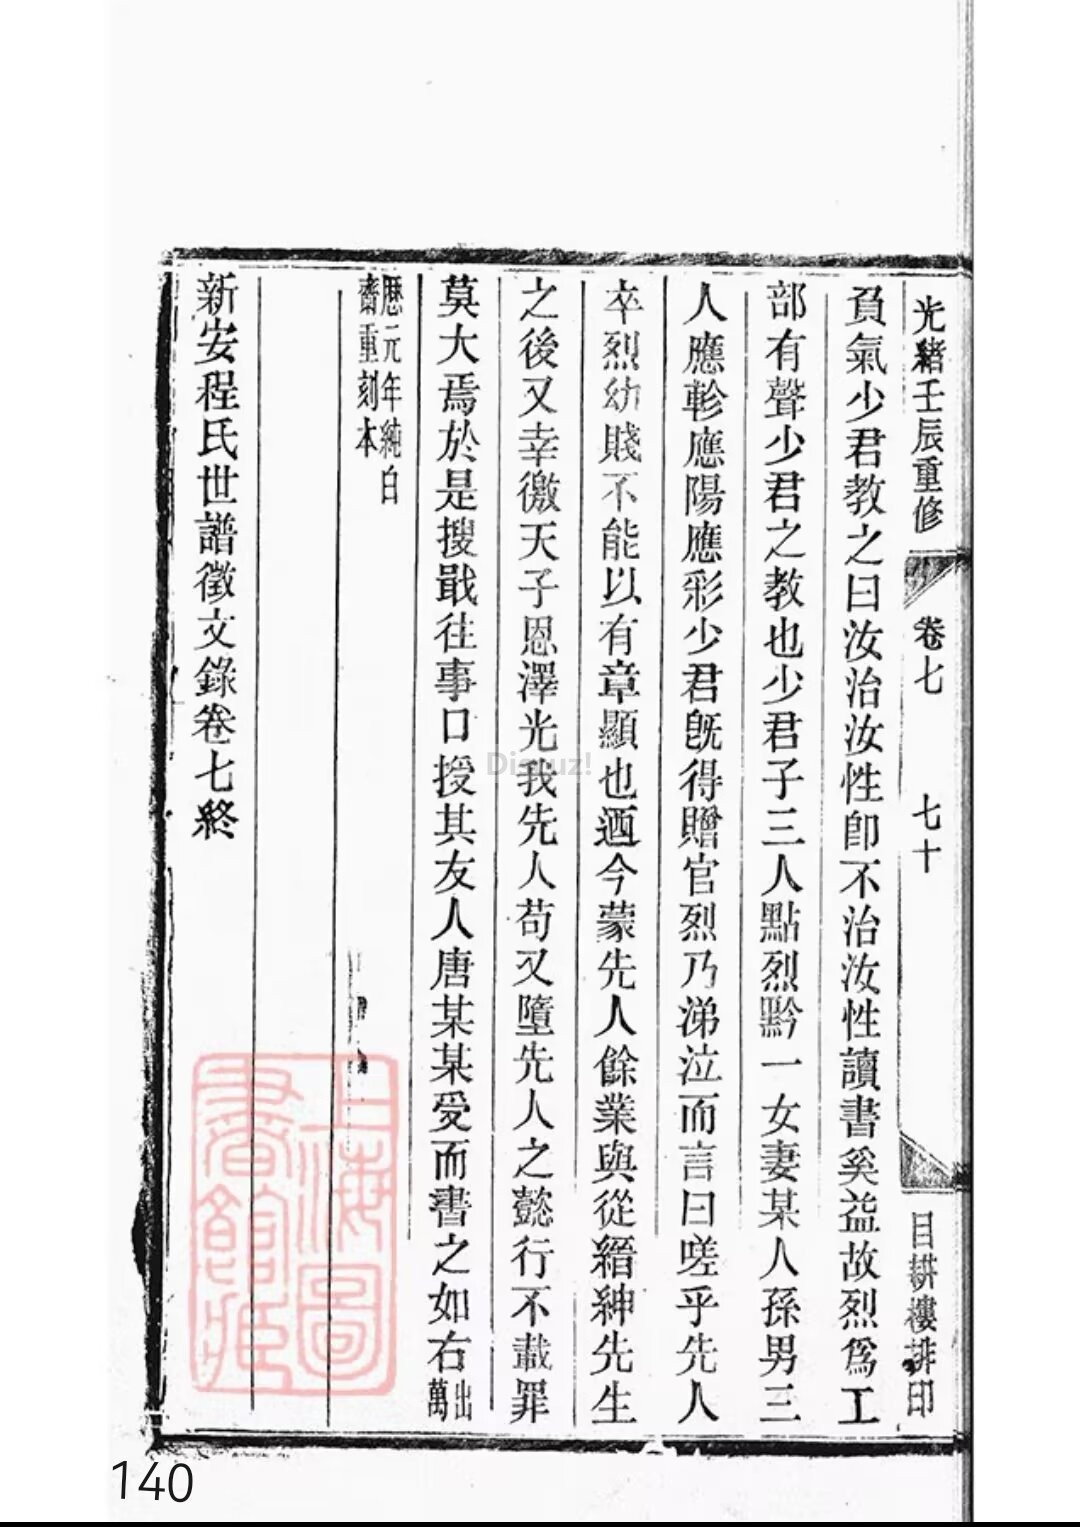 光緒壬辰重修 卷七 七十 目耕樓排印
負氣少君教之曰汝治汝性卽不治汝性讀書奚益故烈爲工
部有聲少君之教也少君子三人點烈黔一女妻某人孫男三
人應軫應陽應彩少君旣得贈官烈乃涕泣而言曰嗟乎先人
卒烈幼賤不能以有章顯也迺今蒙先人餘業與從縉紳先生
之後又幸徼天子恩澤光我先人苟又墮先人之懿行不載罪
莫大焉於是搜戢往事口授其友人唐某某受而書之如右出萬
厯元年純白
齋重刻本
新安程氏世譜徵文錄卷七終
上海圖
書館藏
Discuz!
140